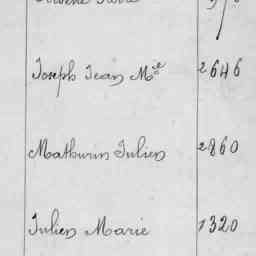 Joseph Jean Mie 2646
Mathurin Julien 2860
Julien Marie 1320